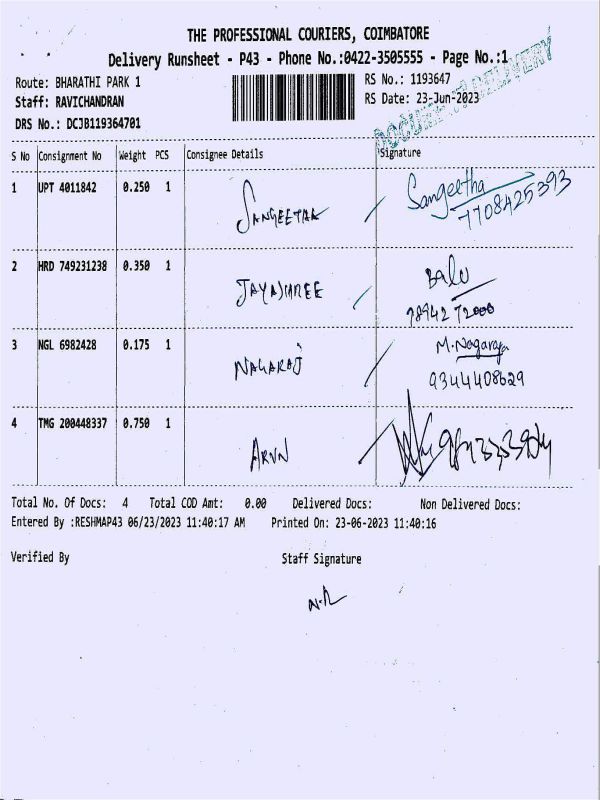 THE PROFESSIONAL COURIERS, COIMBATORE
Delivery Runsheet - P43 - Phone No.:0422-3505555 - Page No.:1
Route: BHARATHI PARK 1 RS No.: 1193647
Staff: RAVICHANDRAN RS Date: 23-Jun-2023
DRS No.: DCJB119364701
S No Consignment No Weight PCS Consignee Details Signature
1 UPT 4011842 0.250 1 SANGEETHA Sangeetha
7708425393
2 HRD 749231238 0.350 1 JAYASHREE Balu
3 NGL 6982428 0.175 1 NAGARAJ M.Nagaraja
9344408629
4 TMG 200448337 0.750 1 ARUN
Total No. Of Docs: 4 Total COD Amt: 0.00 Delivered Docs: Non Delivered Docs:
Entered By :RESHMAP43 06/23/2023 11:40:17 AM Printed On: 23-06-2023 11:40:16
Verified By Staff Signature